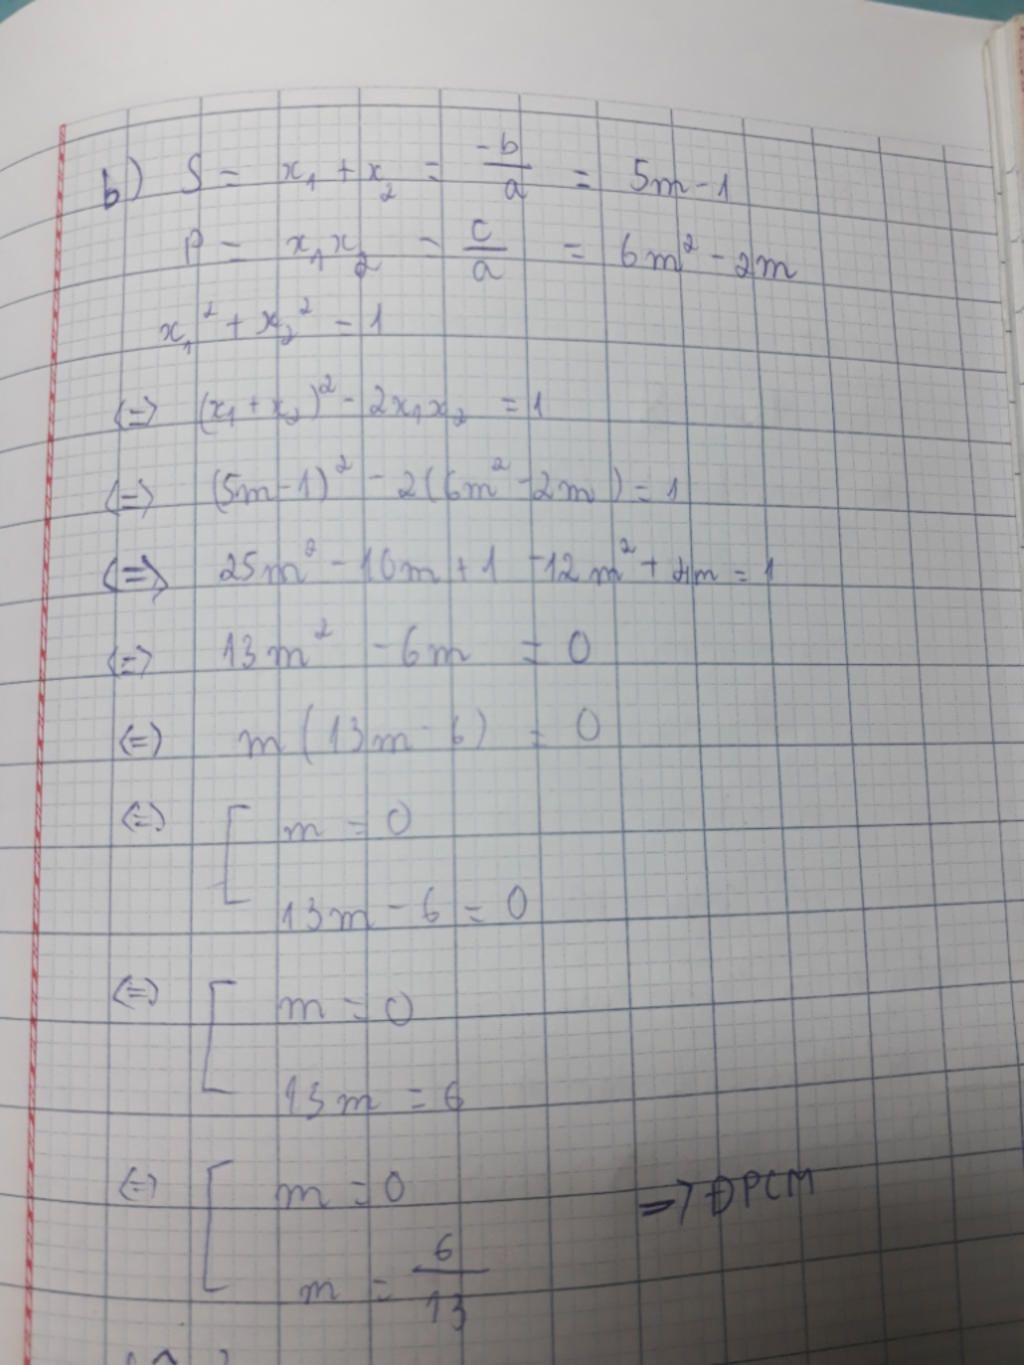 b) S = x₁ + x₂ = -b/a = 5m - 1
P = x₁x₂ = c/a = 6m² - 2m
x₁² + x₂² = 1
<=> (x₁ + x₂)² - 2x₁x₂ = 1
<=> (5m - 1)² - 2(6m² - 2m) = 1
<=> 25m² - 10m + 1 - 12m² + 4m = 1
<=> 13m² - 6m = 0
<=> m(13m - 6) = 0
<=> [ m = 0
13m - 6 = 0
<=> [ m = 0
13m = 6
<=> [ m = 0 => ĐPCM
m = 6/13